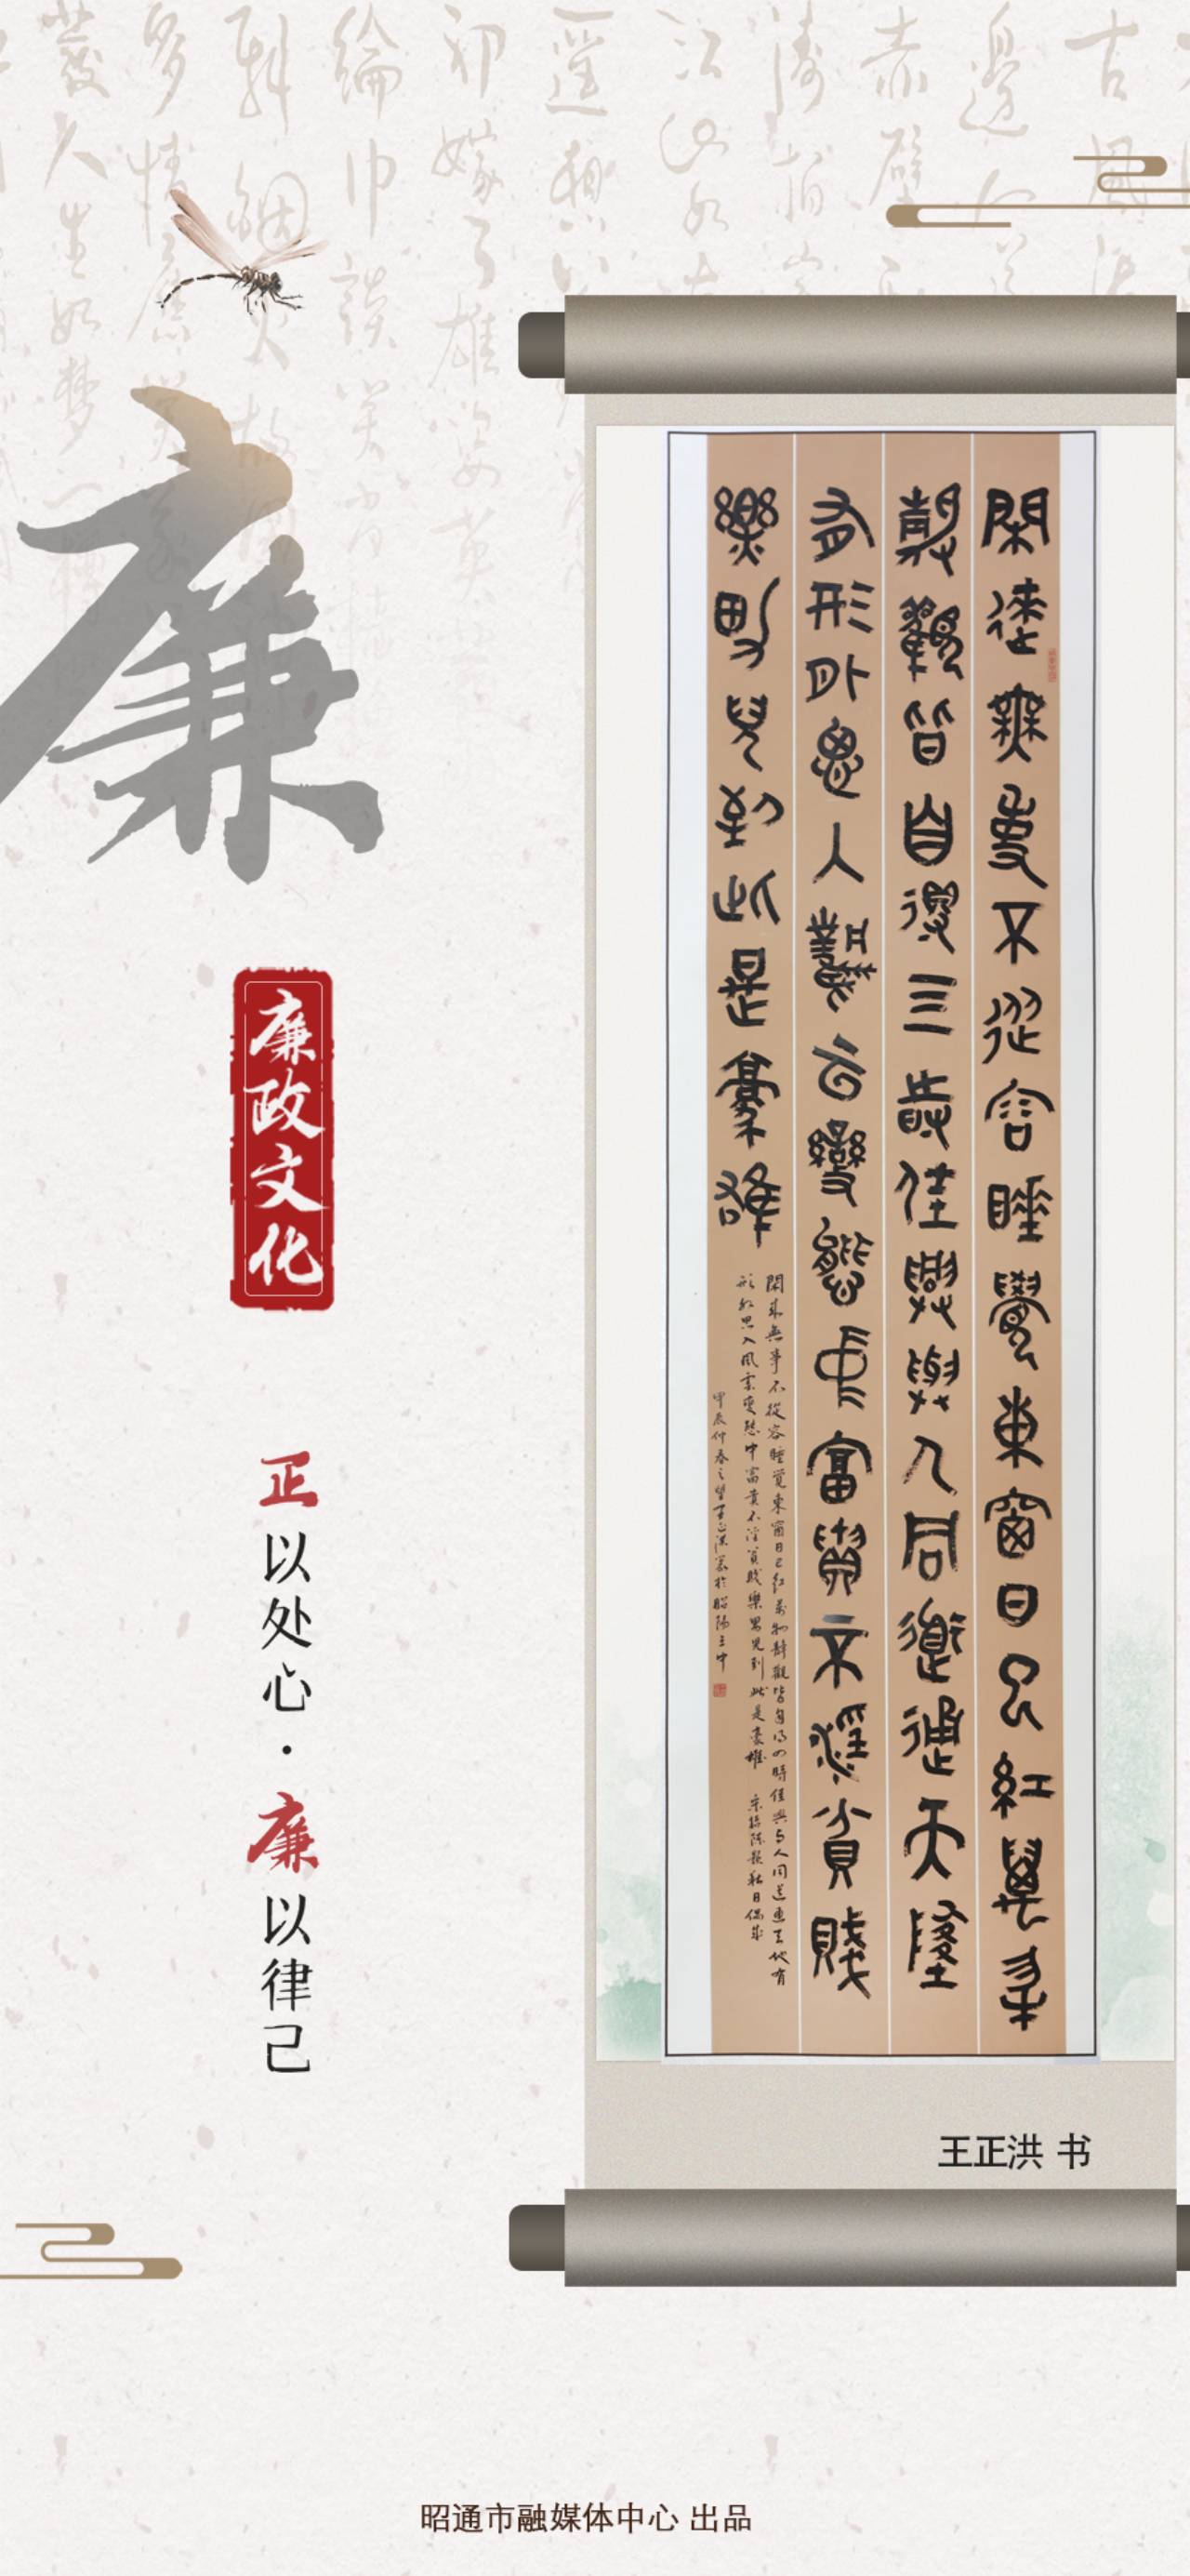 廉
廉政文化
正以处心·廉以律己
閑來無事不從容睡覺東窗日已紅萬物
靜觀皆自得四時佳興與人同道通天地
有形外思入風雲變態中富貴不淫貧賤
樂男兒到此是豪雄
閑來無事不從容睡覺東窗日已紅萬物靜觀皆自得四時佳興与人同道通天地有
形外思入風雲變態中富貴不淫貧賤樂男兒到此是豪雄 宋程顥秋日偶成
甲辰仲春之望王正洪篆於昭陽
王正洪 书
昭通市融媒体中心 出品